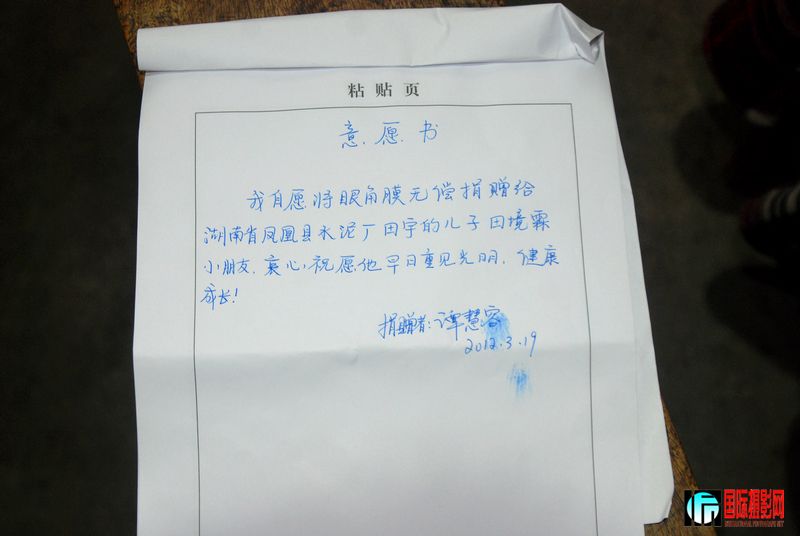 粘贴页
意愿书
我自愿将眼角膜无偿捐赠给
湖南省凤凰县水泥厂田宇的儿子田境霖
小朋友，衷心祝愿他早日重见光明，健康
成长！
捐赠者：谭慧容
2012.3.19
国际摄影网